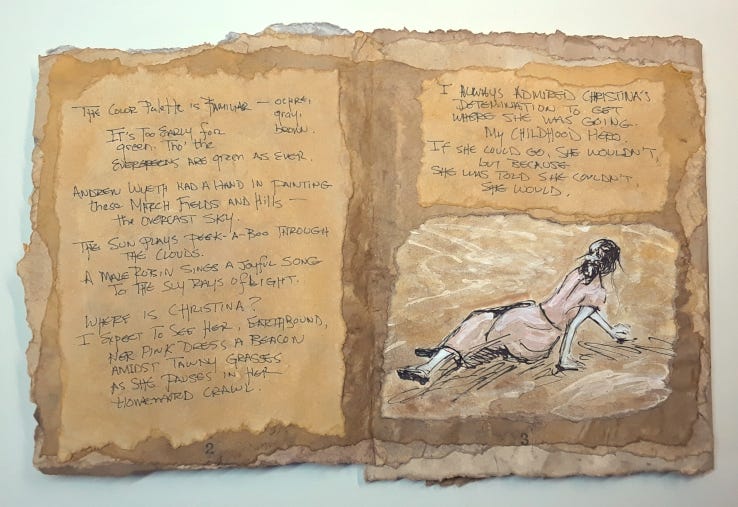 The Color Palette is Familiar — ochre,
gray,
brown.
It's Too Early for
green. Tho' the
Evergreens are green as ever.
Andrew Wyeth had a hand in painting
these March fields and hills —
the overcast sky.
The sun plays peek-a-boo through
the clouds.
A male robin sings a joyful song
to the sly rays of light.
Where is Christina?
I expect to see her, earthbound,
her pink dress a beacon
amidst tawny grasses
as she pauses in her
homeward crawl.
2
I always admired Christina's
detemination to get
where she was going.
My childhood hero.
If she could go, she wouldn't,
but because
she was told she couldn't
she would.
3